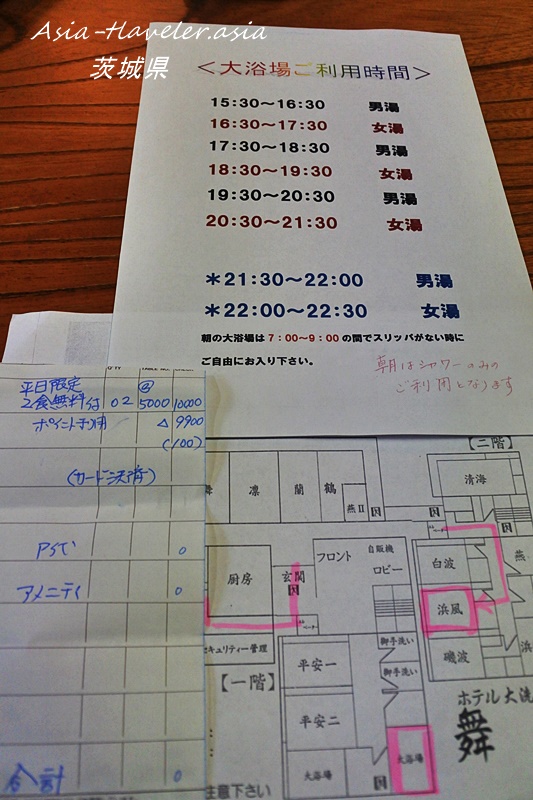 Asia-Traveler.asia
茨城県
＜大浴場ご利用時間＞
15:30～16:30 男湯
16:30～17:30 女湯
17:30～18:30 男湯
18:30～19:30 女湯
19:30～20:30 男湯
20:30～21:30 女湯
＊21:30～22:00 男湯
＊22:00～22:30 女湯
朝の大浴場は７：００～９：００の間でスリッパがない時に
ご自由にお入り下さい。
朝はシャワーのみの
ご利用となります
平日限定 @
2食無料付 02 5000 10000
ポイント利用 △ 9900
(100)
(カード決済)
アメニティ 0
合計 0
【二階】
清海
凛 蘭 鶴
燕Ⅱ
厨房 玄関 フロント 自販機
ロビー
白波 燕
浜風
磯波 浜
御手洗い
御手洗い
セキュリティー管理
【一階】
平安一
平安二
大浴場 大浴場
ホテル大洗
舞
注意下さい